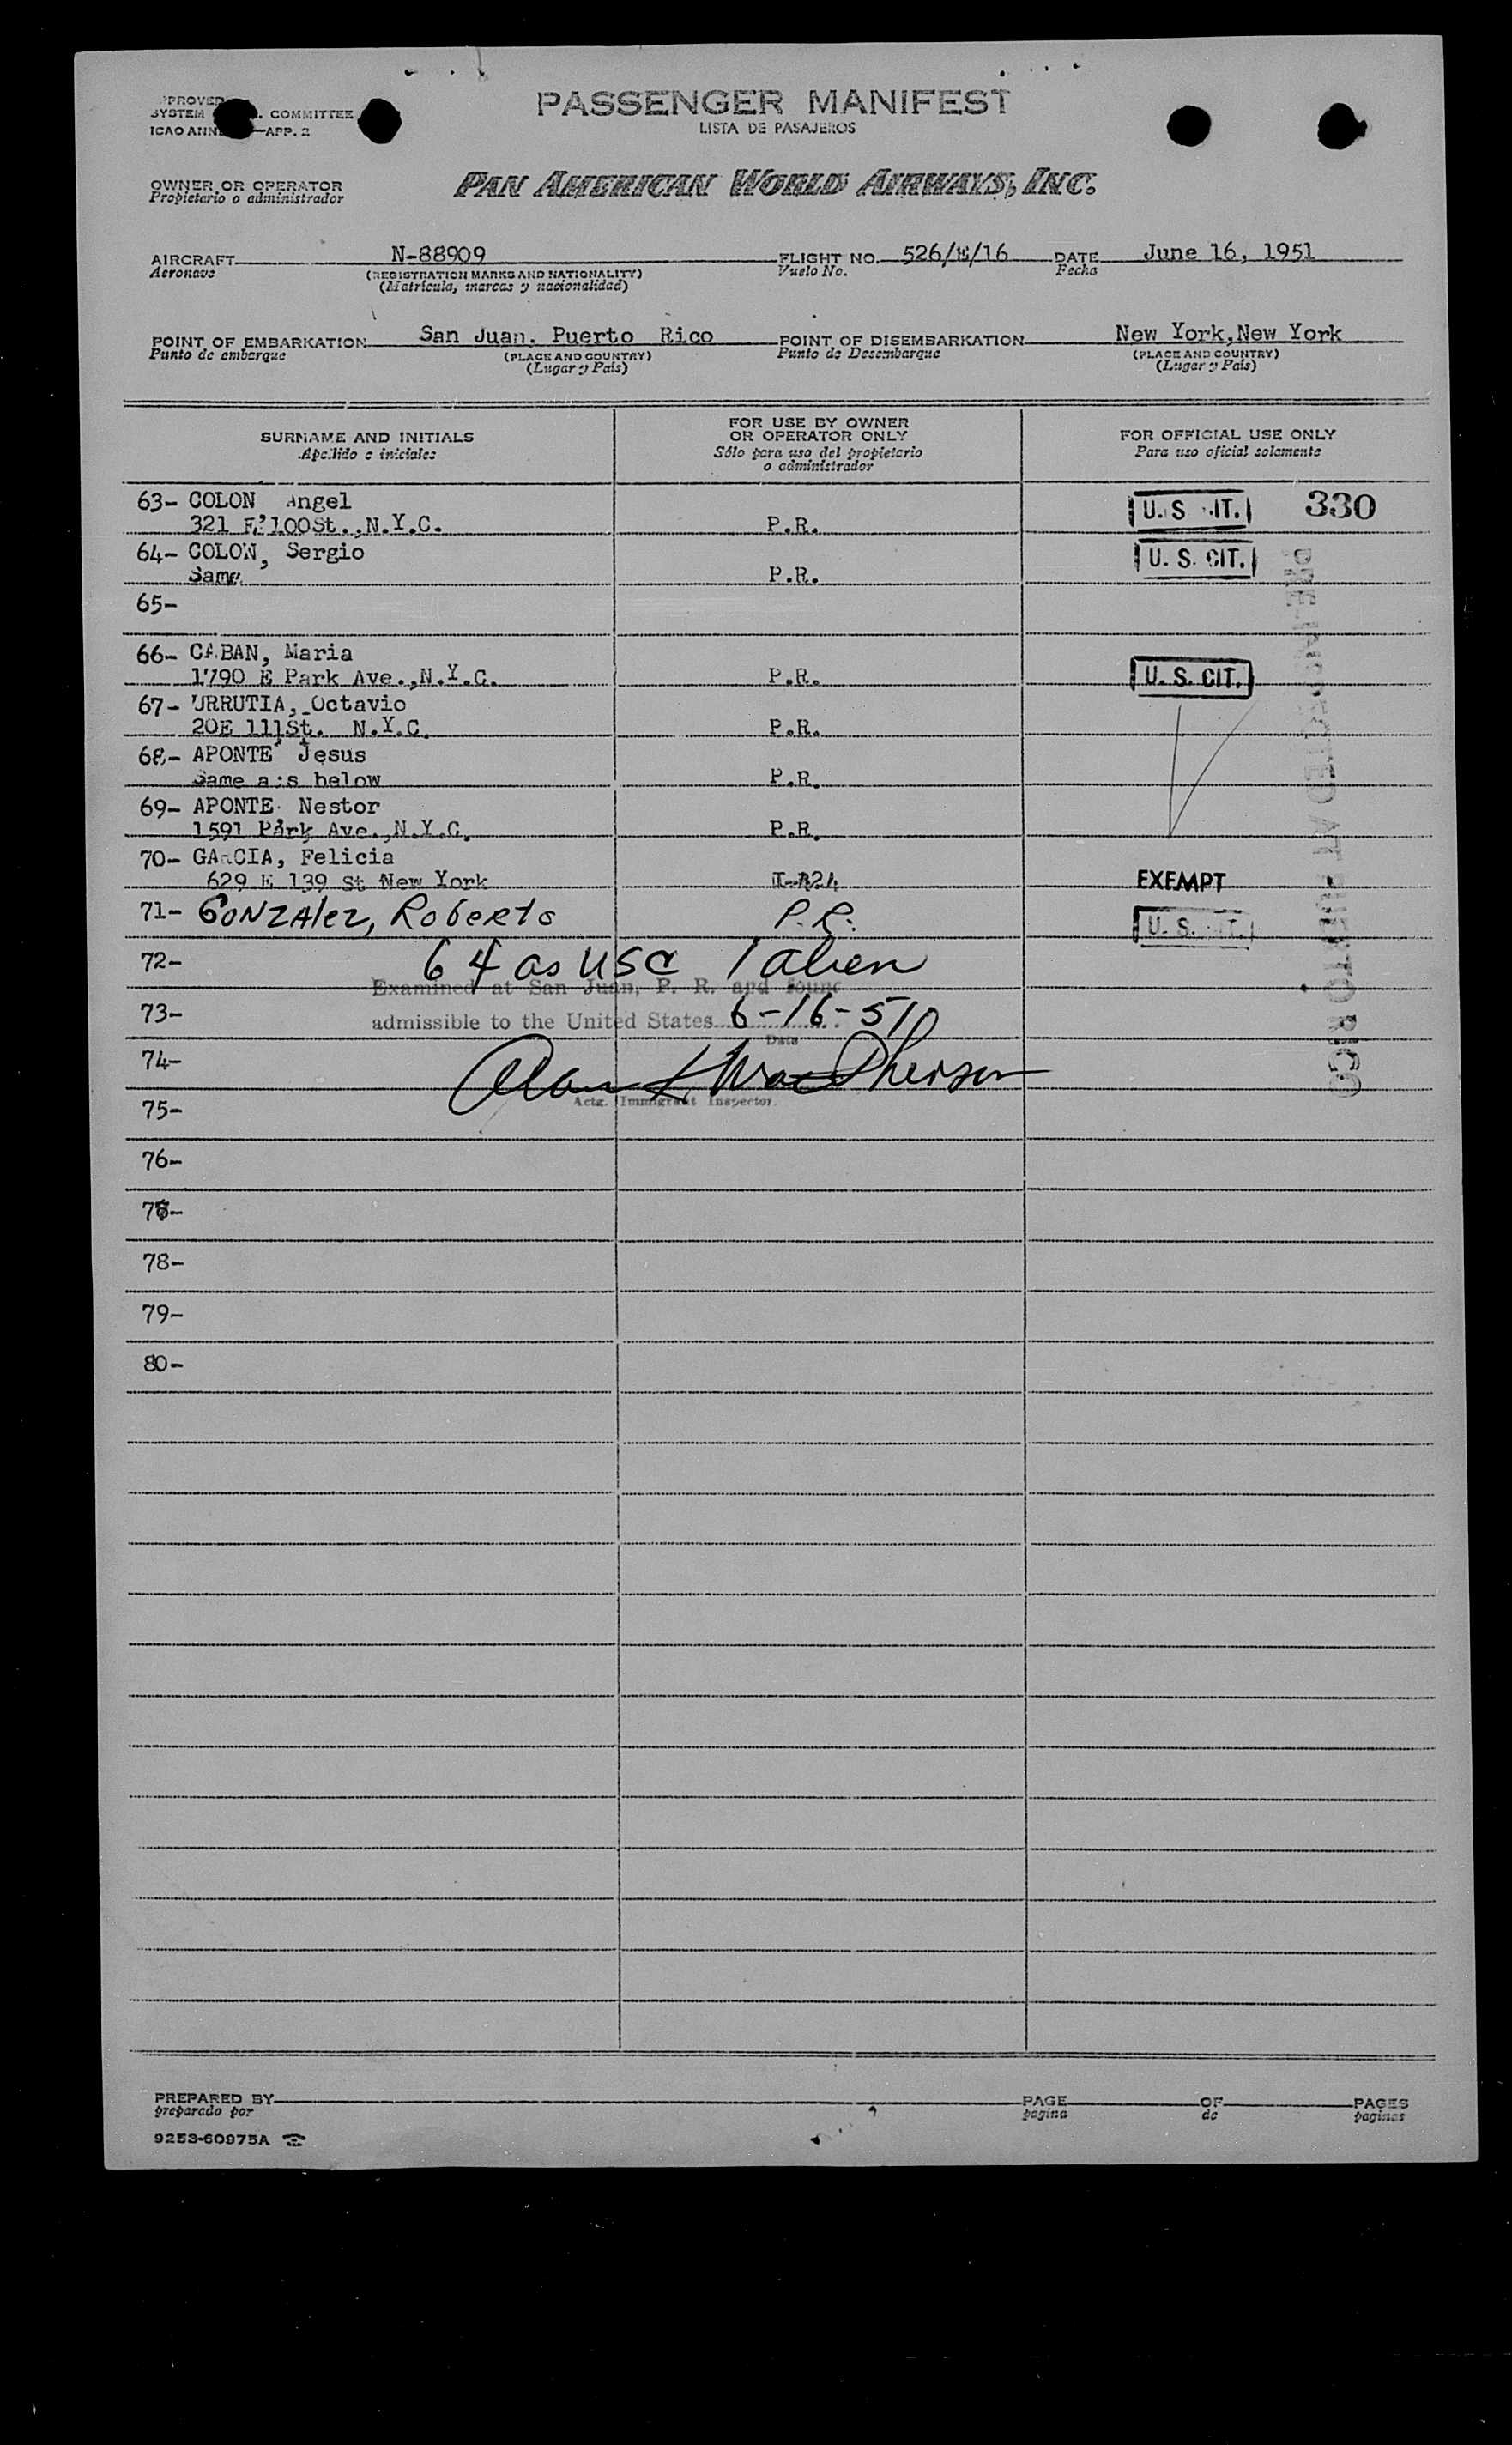 PASSENGER MANIFEST
LISTA DE PASAJEROS
SYSTEM COMMITTEE
ICAO APP. 2
OWNER OR OPERATOR
Propietario o administrador
PAN AMERICAN WORLD AIRWAYS, INC.
AIRCRAFT N-88909 FLIGHT NO. 526/E/16 DATE June 16, 1951
Aeronave (REGISTRATION MARKS AND NATIONALITY) Vuelo No. Fecha
(Matrícula, marcas y nacionalidad)
POINT OF EMBARKATION San Juan, Puerto Rico POINT OF DISEMBARKATION New York,New York
Punto de embarque (PLACE AND COUNTRY) Punto de Desembarque (PLACE AND COUNTRY)
(Lugar y País) (Lugar y País)
SURNAME AND INITIALS
Apellido e iniciales
FOR USE BY OWNER
OR OPERATOR ONLY
Sólo para uso del propietario
o administrador
FOR OFFICIAL USE ONLY
Para uso oficial solamente
63- COLON Angel U.S. CIT. 330
321 E 100St.,N.Y.C. P.R.
64- COLON, Sergio U. S. CIT.
Same P.R.
65-
66- CABAN, Maria
1790 E Park Ave.,N.Y.C. P.R. U. S. CIT.
67- URRUTIA, Octavio
20E 111St. N.Y.C. P.R.
68- APONTE Jesus
Same as below P.R.
69- APONTE Nestor
1591 Park Ave.,N.Y.C. P.R.
70- GARCIA, Felicia
629 E 139 St New York EXEMPT
71- GONZAlez, Roberto P.R. U. S. CIT.
72- 64 as USC 1 alien
Examined at San Juan, P. R. and found
73- admissible to the United States 6-16-51
Date
74- Alan K MacPherson
Actg. Immigrant Inspector.
75-
76-
77-
78-
79-
80-
PRE-INSPECTED AT PUERTO RICO
PREPARED BY PAGE OF PAGES
preparado por pagina de paginas
9253-60975A